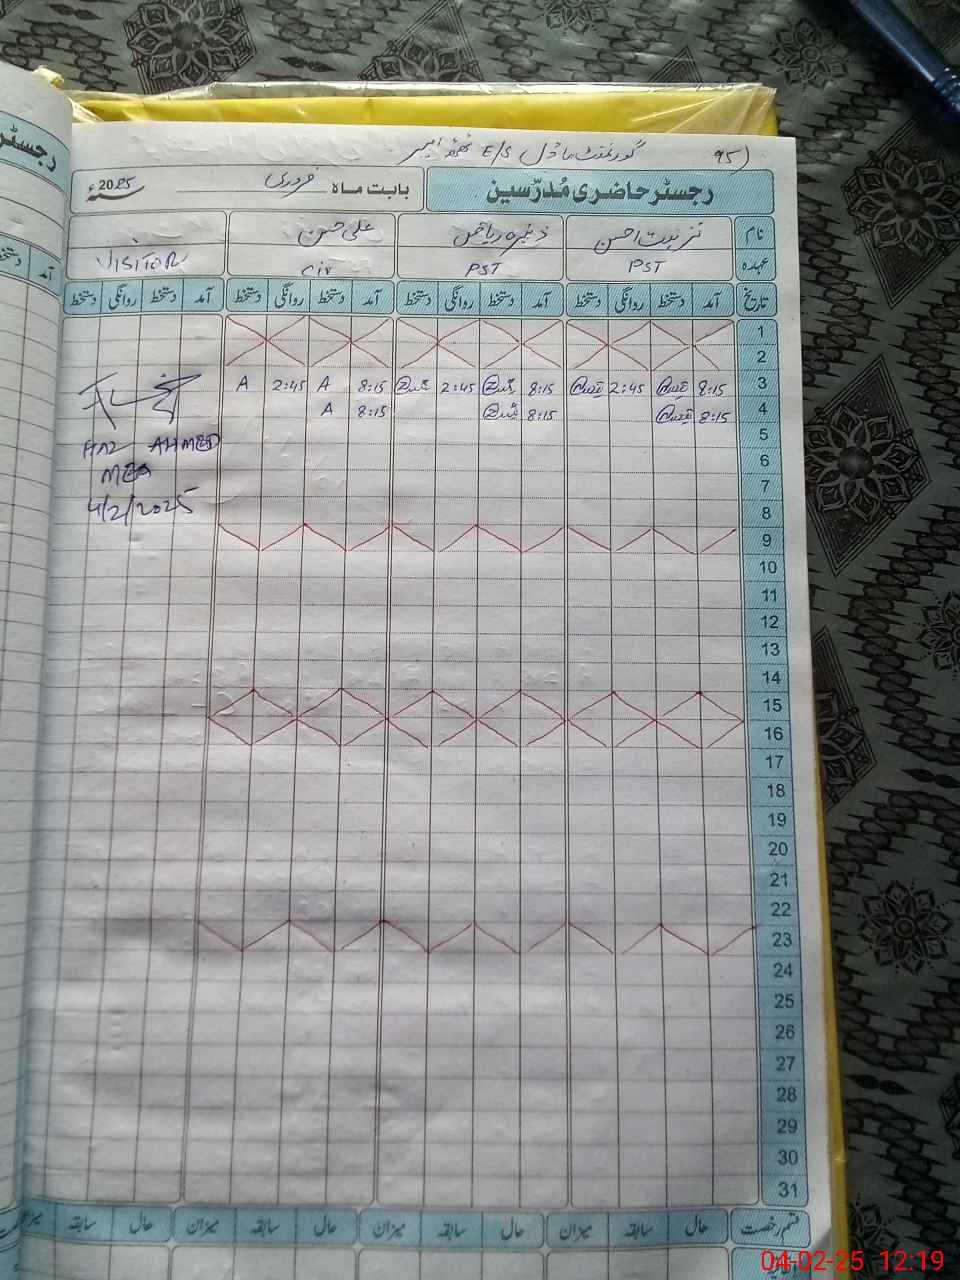 گورنمنٹ ماڈل E/S
رجسٹر حاضری مُدرّسین
بابت ماہ فروری 2025ء
نام علی حسن
عہدہ PST PST CIV VISITOR
تاریخ آمد دستخط روانگی دستخط آمد دستخط روانگی دستخط آمد دستخط روانگی دستخط آمد دستخط روانگی دستخط
1
2
3 8:15 2:45 8:15 2:45 8:15 A 2:45 A
4 8:15 8:15 8:15 A
5
AHMED
6
MEA
7
4/2/2025
8
9
10
11
12
13
14
15
16
17
18
19
20
21
22
23
24
25
26
27
28
29
30
31
قسم رخصت حال سابقہ میزان حال سابقہ میزان حال سابقہ میزان حال سابقہ
04-02-25 12:19